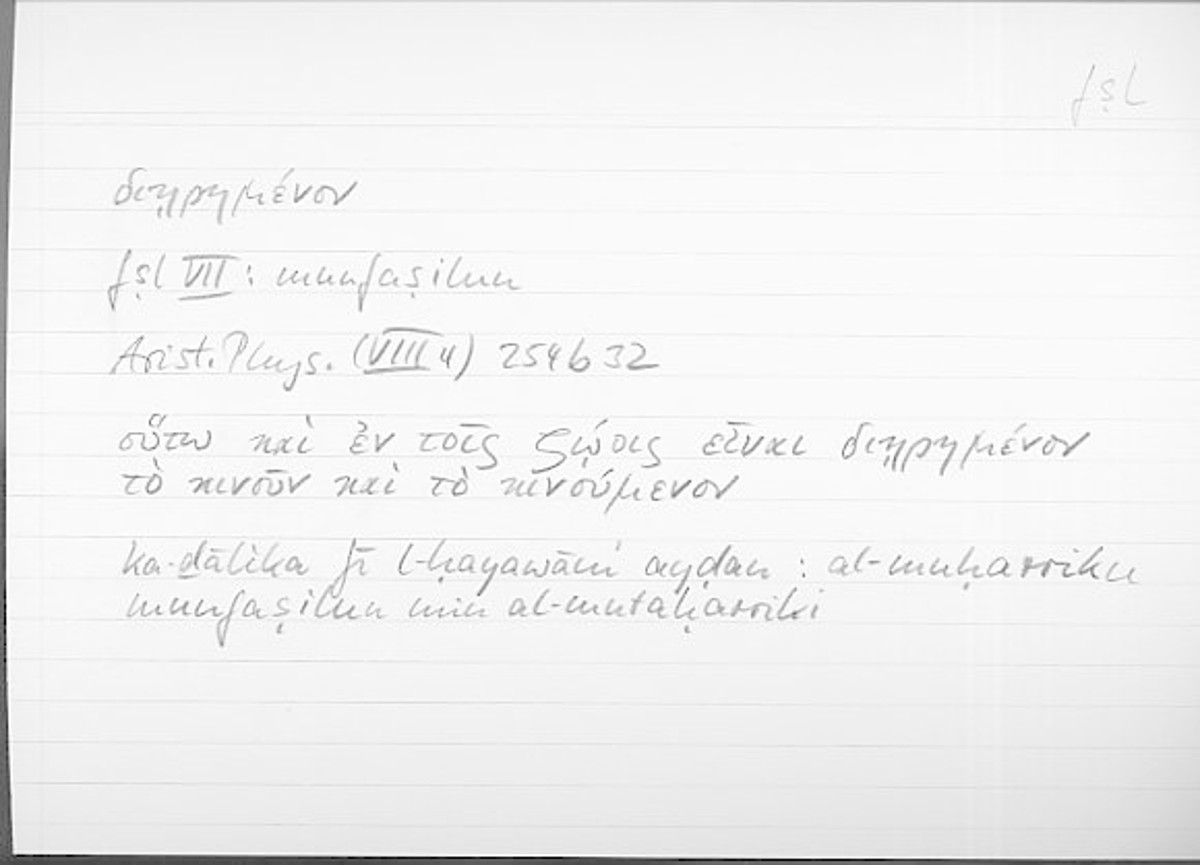 fṣl
διῃρημένον
fṣl VII : munfaṣilun
Arist. Phys. (VIII 4) 254b32
οὕτω καὶ ἐν τοῖς ζῴοις εἶναι διῃρημένον
τὸ κινοῦν καὶ τὸ κινούμενον
ka-ḏālika fī l-ḥayawāni ayḍan : al-muḥarriku
munfaṣilun min al-mutaḥarriki